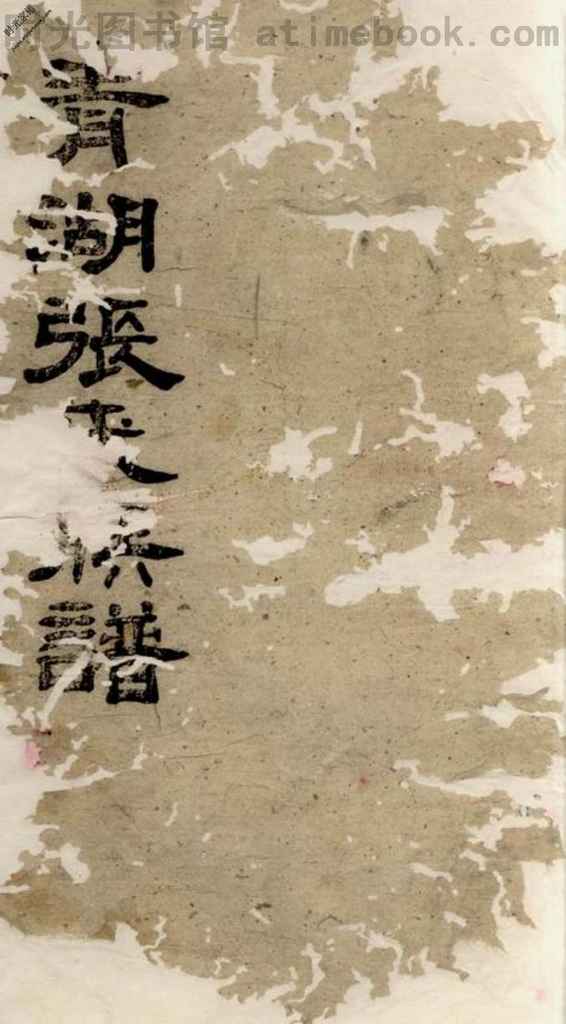 时光图书馆 atimebook.com
青湖張氏族譜